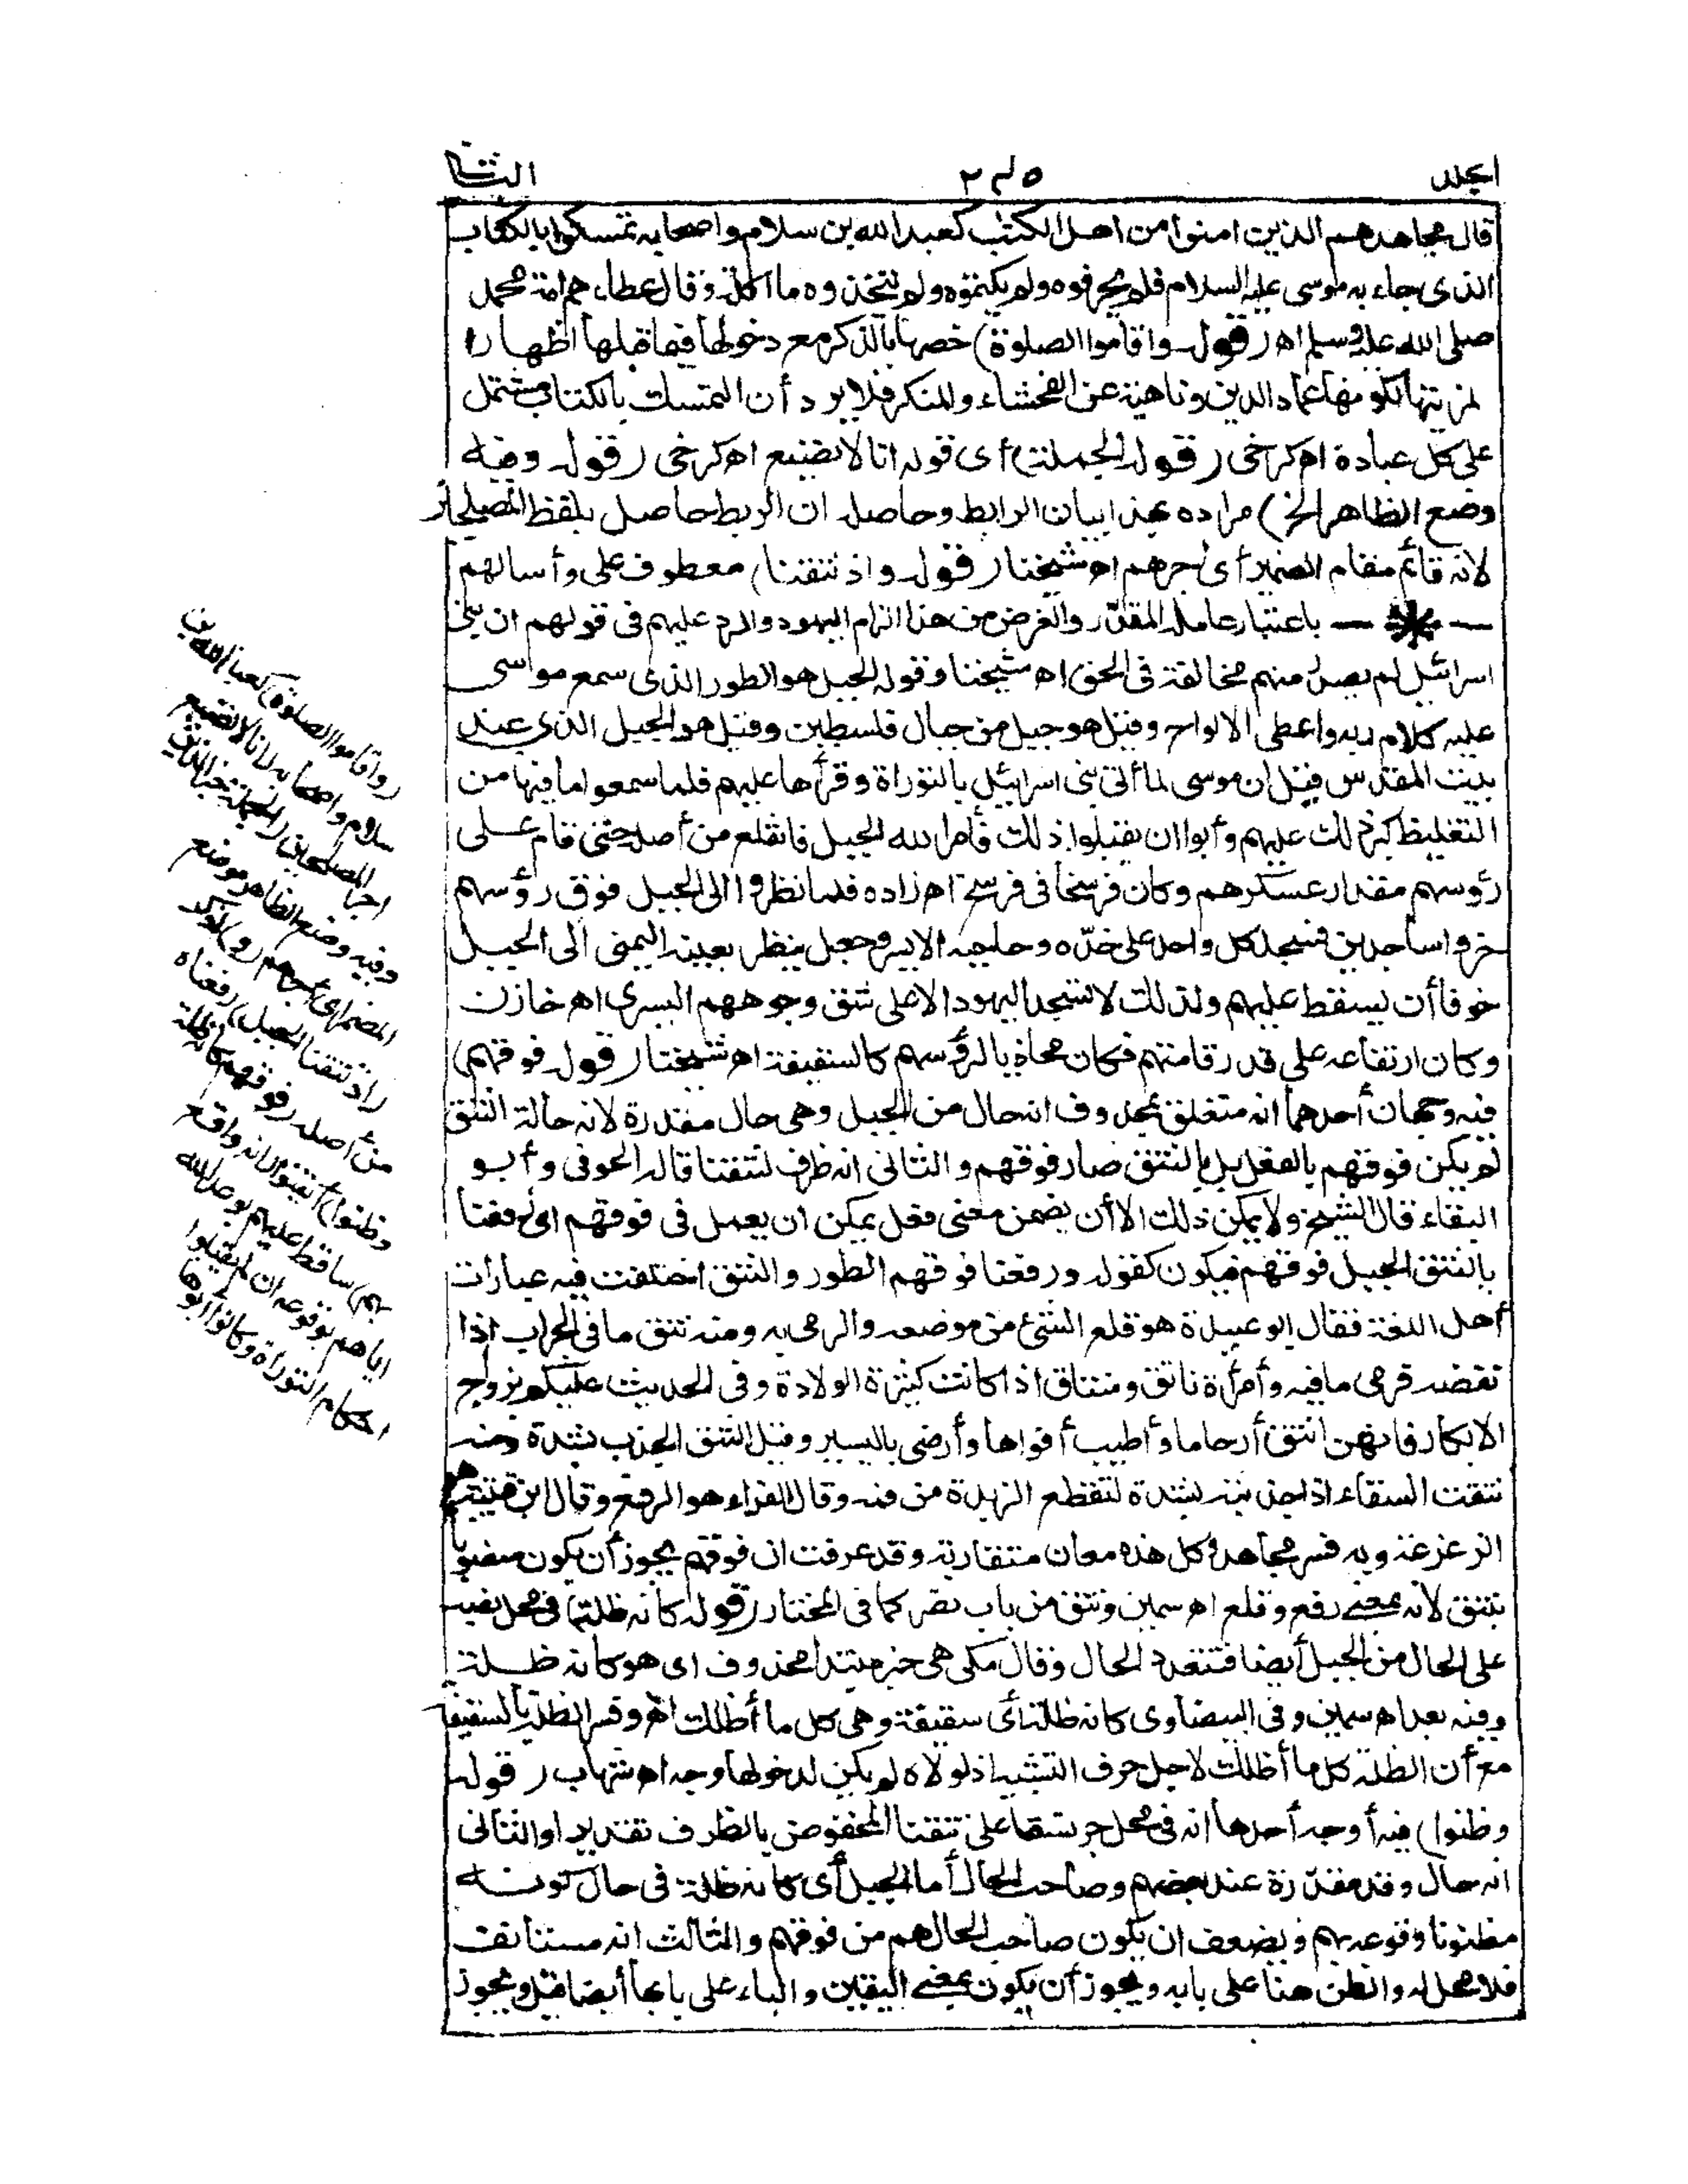 المجلد
٢٤٥
الثانى
قال مجاهد هم الذين امنوا من اهل الكتب كعبد الله بن سلام واصحابه تمسكوا بالكتاب
الذى جاء به موسى عليه السلام فلم يحرفوه ولم يكتموه ولم يتخذوه ماكلة وقال عطاء هم امة محمد
صلى الله عليه وسلم اه (قوله واقاموا الصلوة) خصها بالذكر مع دخولها فيما قبلها اظهارا
لمزيتها لكونها عماد الدين وناهية عن الفحشاء والمنكر فلا يرد أن التمسك بالكتاب مشتمل
على كل عبادة اه كرخى (قوله الجملة) أى قوله انا لا نضيع اه كرخى (قوله وفيه
وضع الظاهر الخ) مراده بهذا بيان الرابط وحاصله ان الربط حاصل بلفظ المصلحين
لانه قائم مقام الضمير أى اجرهم اه شيخنا (قوله واذ نتقنا) معطوف على وأسألهم
باعتبار عامله المقدر والغرض من هذا الزام اليهود والرد عليهم فى قولهم ان بنى
اسرائيل لم يصدر منهم مخالفة فى الحق اه شيخنا وقوله الجبل هو الطور الذى سمع موسى
عليه كلام ربه واعطى الالواح وقيل هو جبل من جبال فلسطين وقيل هو الجبل الذى عند
بيت المقدس قيل ان موسى لما أتى بنى اسرائيل بالتوراة وقرأها عليهم فلما سمعوا ما فيها من
التغليظ كبر ذلك عليهم وأبوا ان يقبلوا ذلك فأمر الله الجبل فانقلع من أصله حتى قام على
رؤسهم مقدار عسكرهم وكان فرسخا فى فرسخ اه زاده فلما نظروا الى الجبل فوق رؤسهم
خروا ساجدين فسجد كل واحد على خدّه وحاجبه الايسر وجعل ينظر بعينه اليمنى الى الجبل
خوفا أن يسقط عليهم ولذلك لا تسجد اليهود الا على شق وجوههم اليسرى اه خازن
وكان ارتفاعه على قدر قامتهم فكان محاذيا لرؤسهم كالسقيفة اه شيخنا (قوله فوقهم)
فيه وجهان أحدهما انه متعلق بمحذوف انه حال من الجبل وهى حال مقدرة لانه حالة النتق
لم يكن فوقهم بالفعل بل بالنتق صار فوقهم والثانى انه ظرف لنتقنا قاله الحوفى وأبو
البقاء قال الشيخ ولا يمكن ذلك الا أن يضمن معنى فعل يمكن ان يعمل فى فوقهم اى رفعنا
بالنتق الجبل فوقهم فيكون كقوله ورفعنا فوقهم الطور والنتق اختلفت فيه عبارات
أهل اللغة فقال ابو عبيدة هو قلع الشئ من موضعه والرمى به ومنه نتق ما فى الجراب اذا
نفضه فرمى ما فيه وأمرأة ناتق ومنتاق اذا كانت كثيرة الولادة وفى الحديث عليكم بزواج
الابكار فانهن انتق أرحاما وأطيب أفواها وأرضى باليسير وقيل النتق الجذب بشدة ومنه
نتقت السقاء اذا جذبته بشدة لتقطع الزبدة من فمه وقال الفراء هو الرفع وقال ابن قتيبة هو
الزعزعة وبه فسر مجاهد وكل هذه معان متقاربة وقد عرفت ان فوقهم يجوز أن يكون منصوبا
بنتق لانه بمعنى رفع وقلع اه سمين ونتق من باب نصر كما فى المختار (قوله كانه ظلة) فى محل نصب
على الحال من الجبل أيضا فتتعدد الحال وقال مكى هى خبر مبتدا محذوف اى هو كانه ظلة
وفيه بعد اه سمين وفى البيضاوى كانه ظلة أى سقيفة وهى كل ما أظلك اه وفسر الظلة بالسقيفة
مع أن الظلة كل ما أظلك لاجل حرف التشبيه اذ لولاه لم يكن لدخولها وجه اه شهاب (قوله
وظنوا) فيه أوجه أحدها انه فى محل جر نسقا على نتقنا المخفوض بالظرف تقديرا والثانى
انه حال وقد مقدّرة عند بعضهم وصاحب الحال أما الجبل أى كانه ظلة فى حال كونه
مظنونا وقوعه بهم ويضعف ان يكون صاحب الحال هم من فوقهم والثالث انه مستأنف
فلا محل له والظن هنا على بابه ويجوز أن يكون بمعنى اليقين والباء على بابها أيضا قيل ويجوز
(واقاموا الصلوة) كعبد الله بن
سلام واصحابه (انا لا نضيع
اجر المصلحين) الجملة خبر الذين
وفيه وضع الظاهر موضع
المضمر اى اجرهم (و) اذكر
(اذ نتقنا الجبل) رفعناه
من أصله (فوقهم كانه ظلة
وظنوا) أيقنوا (انه واقع
بهم) ساقط عليهم بوعد الله
اياهم بوقوعه ان لم يقبلوا
احكام التوراة وكانوا أبوها